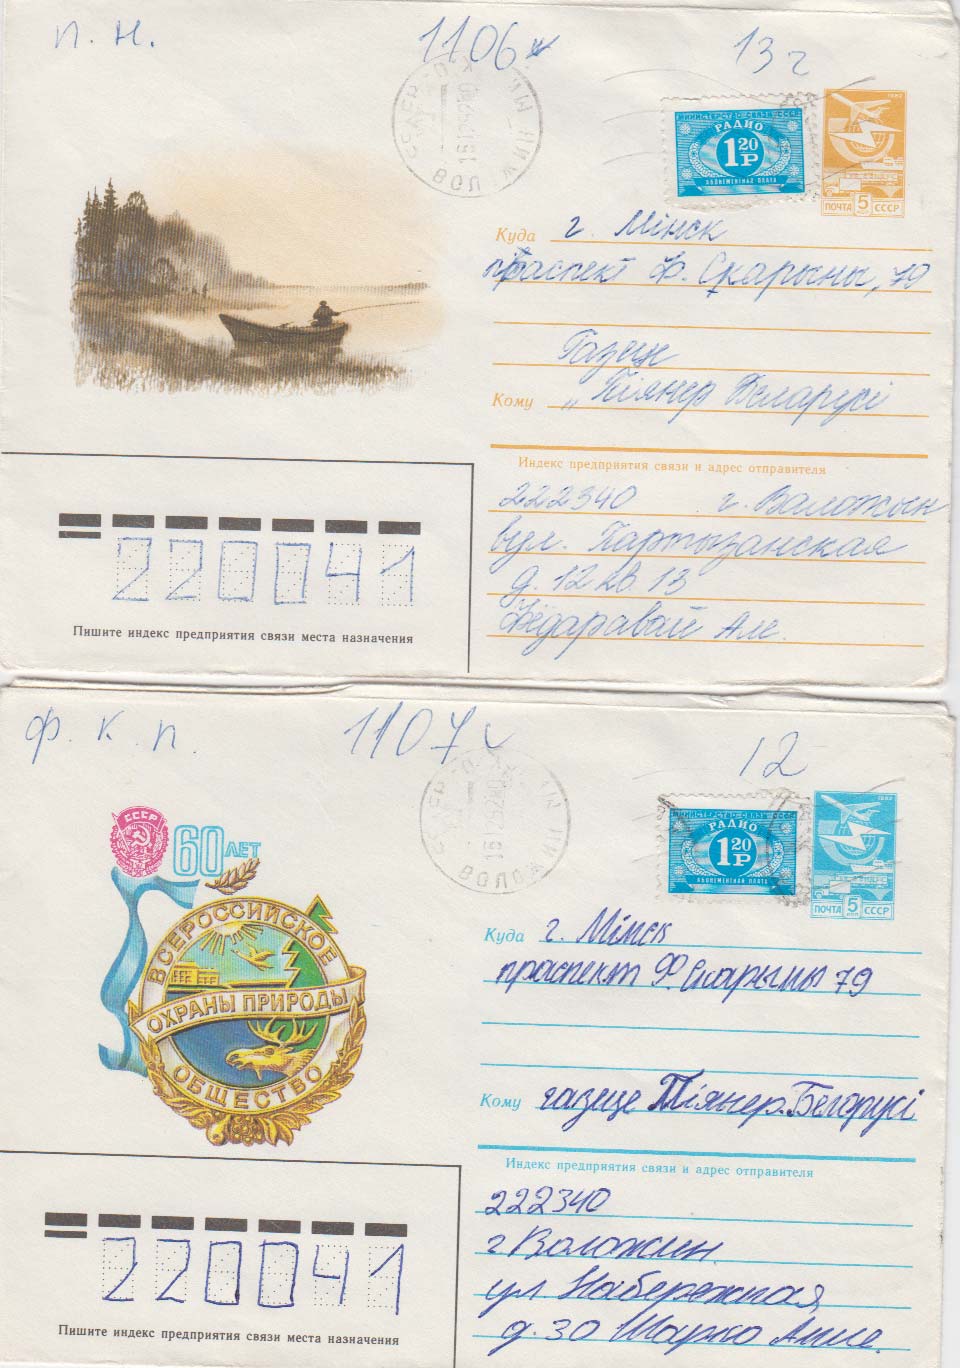 п. н.
1106
13 г
МИНИСТЕРСТВО СВЯЗИ СССР
РАДИО
1 20 Р
АБОНЕМЕНТНАЯ ПЛАТА
1982
ПОЧТА 5 СССР
Куда г. Мінск
праспект Ф. Скарыны, 79
Газеце
Кому „Піянер Беларусі
Индекс предприятия связи и адрес отправителя
222340 г. Валожын
вул. Партызанская
д. 12 кв 13
Фёдаравай Але.
220041
Пишите индекс предприятия связи места назначения
ф. к. п.
1107
12
МИНИСТЕРСТВО СВЯЗИ СССР
РАДИО
1 20 Р
АБОНЕМЕНТНАЯ ПЛАТА
1982
ПОЧТА 5 СССР
СССР
60 ЛЕТ
ВСЕРОССИЙСКОЕ
ОХРАНЫ ПРИРОДЫ
ОБЩЕСТВО
ВОЛОЖИН
Куда г. Мінск
праспект Ф. Скарыны 79
Кому газеце Піянер Беларусі
Индекс предприятия связи и адрес отправителя
222340
г Воложин
ул Набережная
д. 30 Шарко Анне.
220041
Пишите индекс предприятия связи места назначения